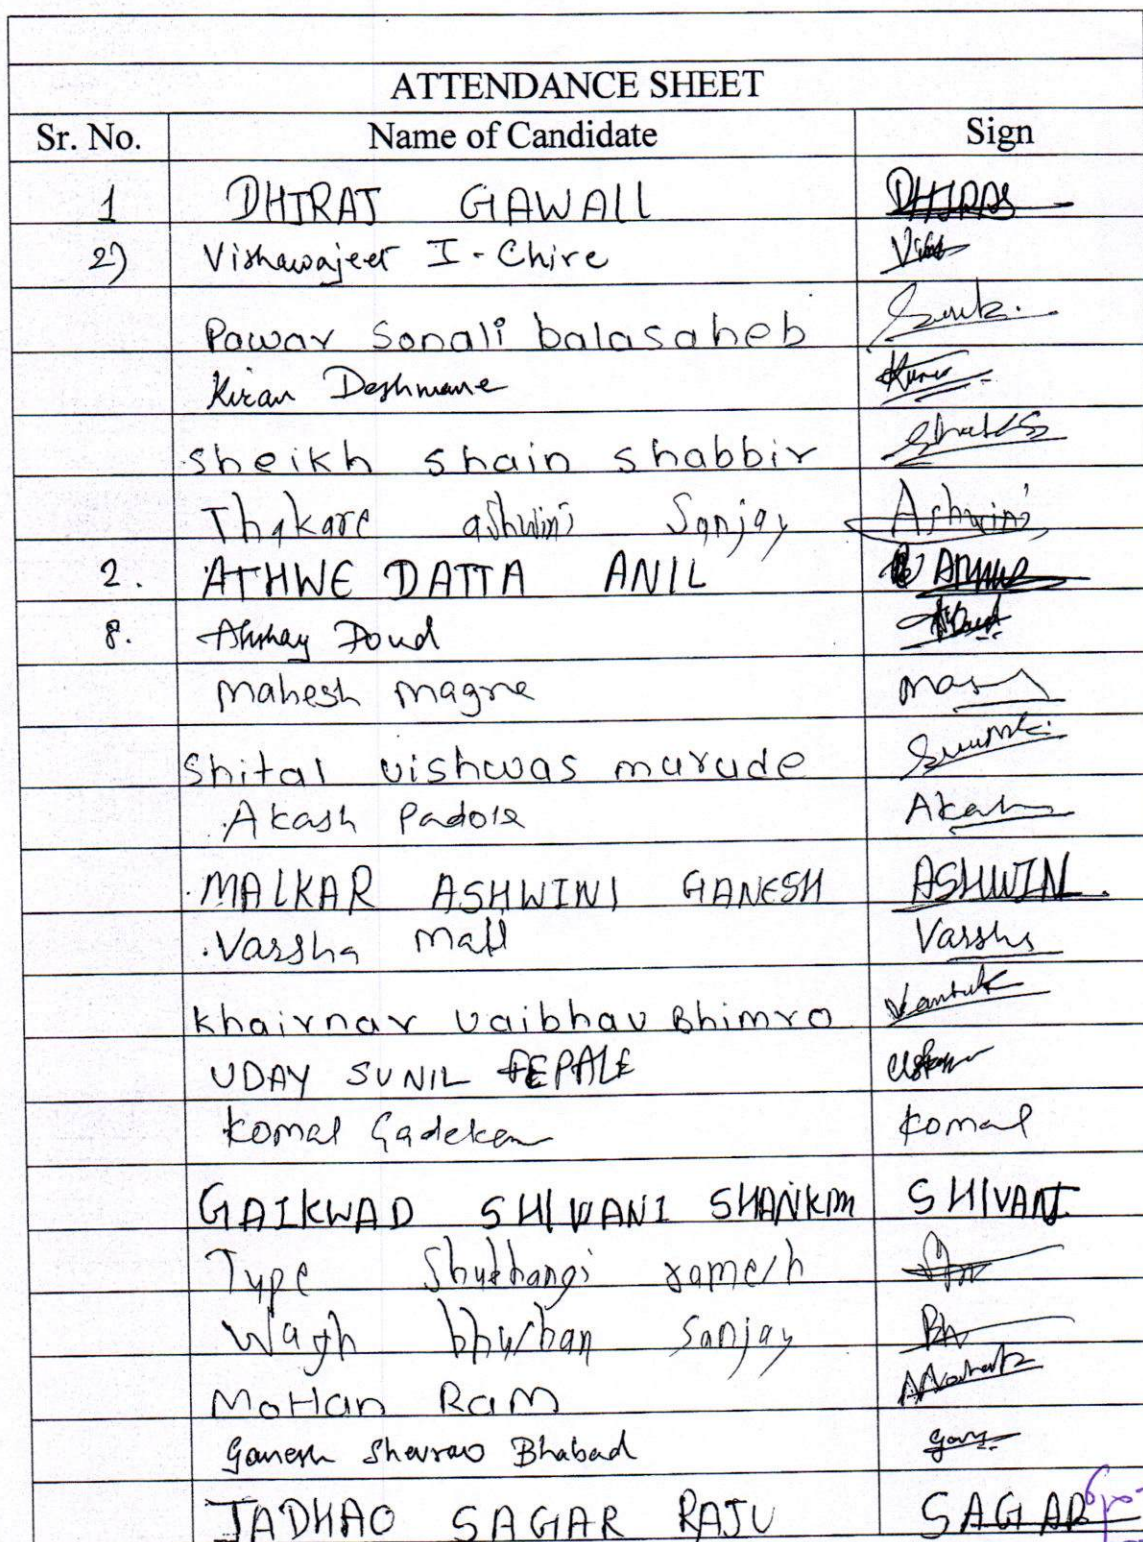 ATTENDANCE SHEET
Sr. No. Name of Candidate Sign
1 DHIRAJ GAWALI DHIRAJ
2) Vishawajeet I - Chire
Pawar Sonali balasaheb
Kiran Deshmane Kiran
Sheikh shain shabbir
Thakare ashwini Sanjay Ashwini
2. ATHWE DATTA ANIL
8. Akshay Doud
Mahesh Magre
Shital vishwas murude
Akash Padole Akash
MALKAR ASHWINI GANESH ASHWIN
Varsha Mall Varsha
Khairnar Vaibhav Bhimro
UDAY SUNIL FEPALE
Komal Gadekar Komal
GAIKWAD SHIVANI SHANKAR SHIVANI
Type Shubhangi ramesh
Wagh bhushan Sanjay Bh
MoHan RaM
Ganesh Shevrao Bhabad
JADHAO SAGAR RAJU SAGAR